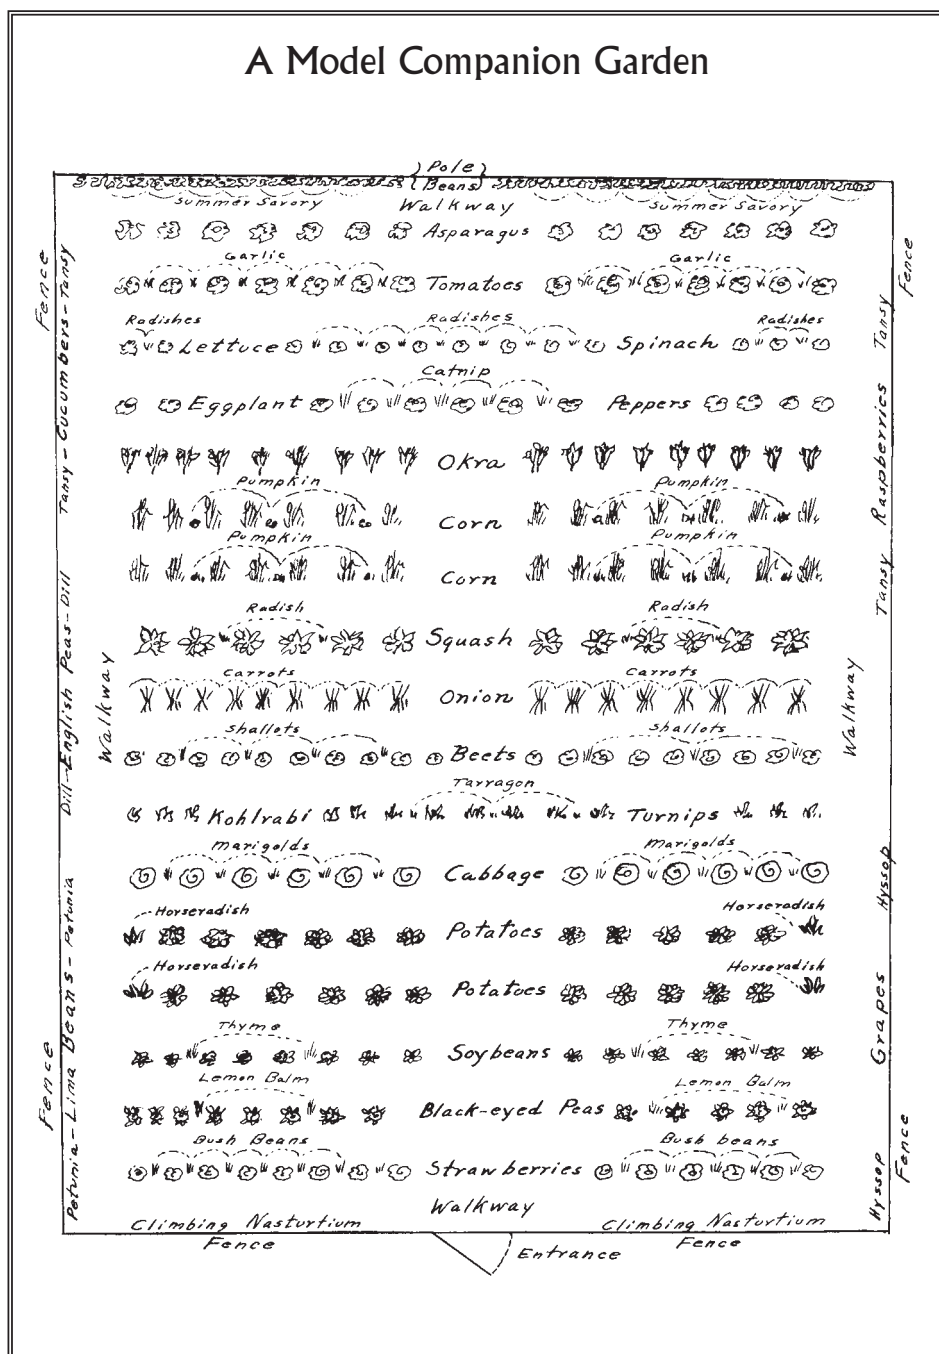 A Model Companion Garden
Pole
Beans
Summer Savory Walkway Summer Savory
Asparagus
Garlic Garlic
Tomatoes
Radishes Radishes Radishes
Lettuce Spinach
Catnip
Eggplant Peppers
Okra
Pumpkin Pumpkin
Corn
Pumpkin Pumpkin
Corn
Radish Radish
Squash
Carrots Carrots
Onion
Shallots Shallots
Beets
Tarragon
Kohlrabi Turnips
Marigolds Marigolds
Cabbage
Horseradish Horseradish
Potatoes
Horseradish Horseradish
Potatoes
Thyme Thyme
Soybeans
Lemon Balm Lemon Balm
Black-eyed Peas
Bush Beans Bush beans
Strawberries
Walkway
Climbing Nasturtium Climbing Nasturtium
Fence Fence
Entrance
Fence
Tansy - Cucumbers - Tansy
Dill - English Peas - Dill
Walkway
Petunia - Lima Beans - Petunia
Fence
Fence
Tansy Raspberries Tansy
Walkway
Hyssop Grapes Hyssop
Fence